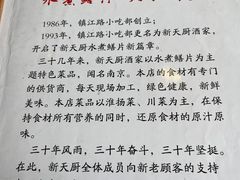 1986年，镇江路小吃部创立；
1993年，镇江路小吃部更名为新天厨酒家，
开启了新天厨水煮鳝片新篇章。
三十几年来，新天厨酒家以水煮鳝片为主
题特色菜品，闻名南京。本店的食材有专门
的供货商，每天现场加工，绿色健康，新鲜
美味。本店菜品以淮扬菜、川菜为主，在保
持食材所有营养的同时，还原食材的原汁原
味。
三十年风雨，三十年奋斗，三十年坚挺。
在此，新天厨全体成员向新老顾客的支持